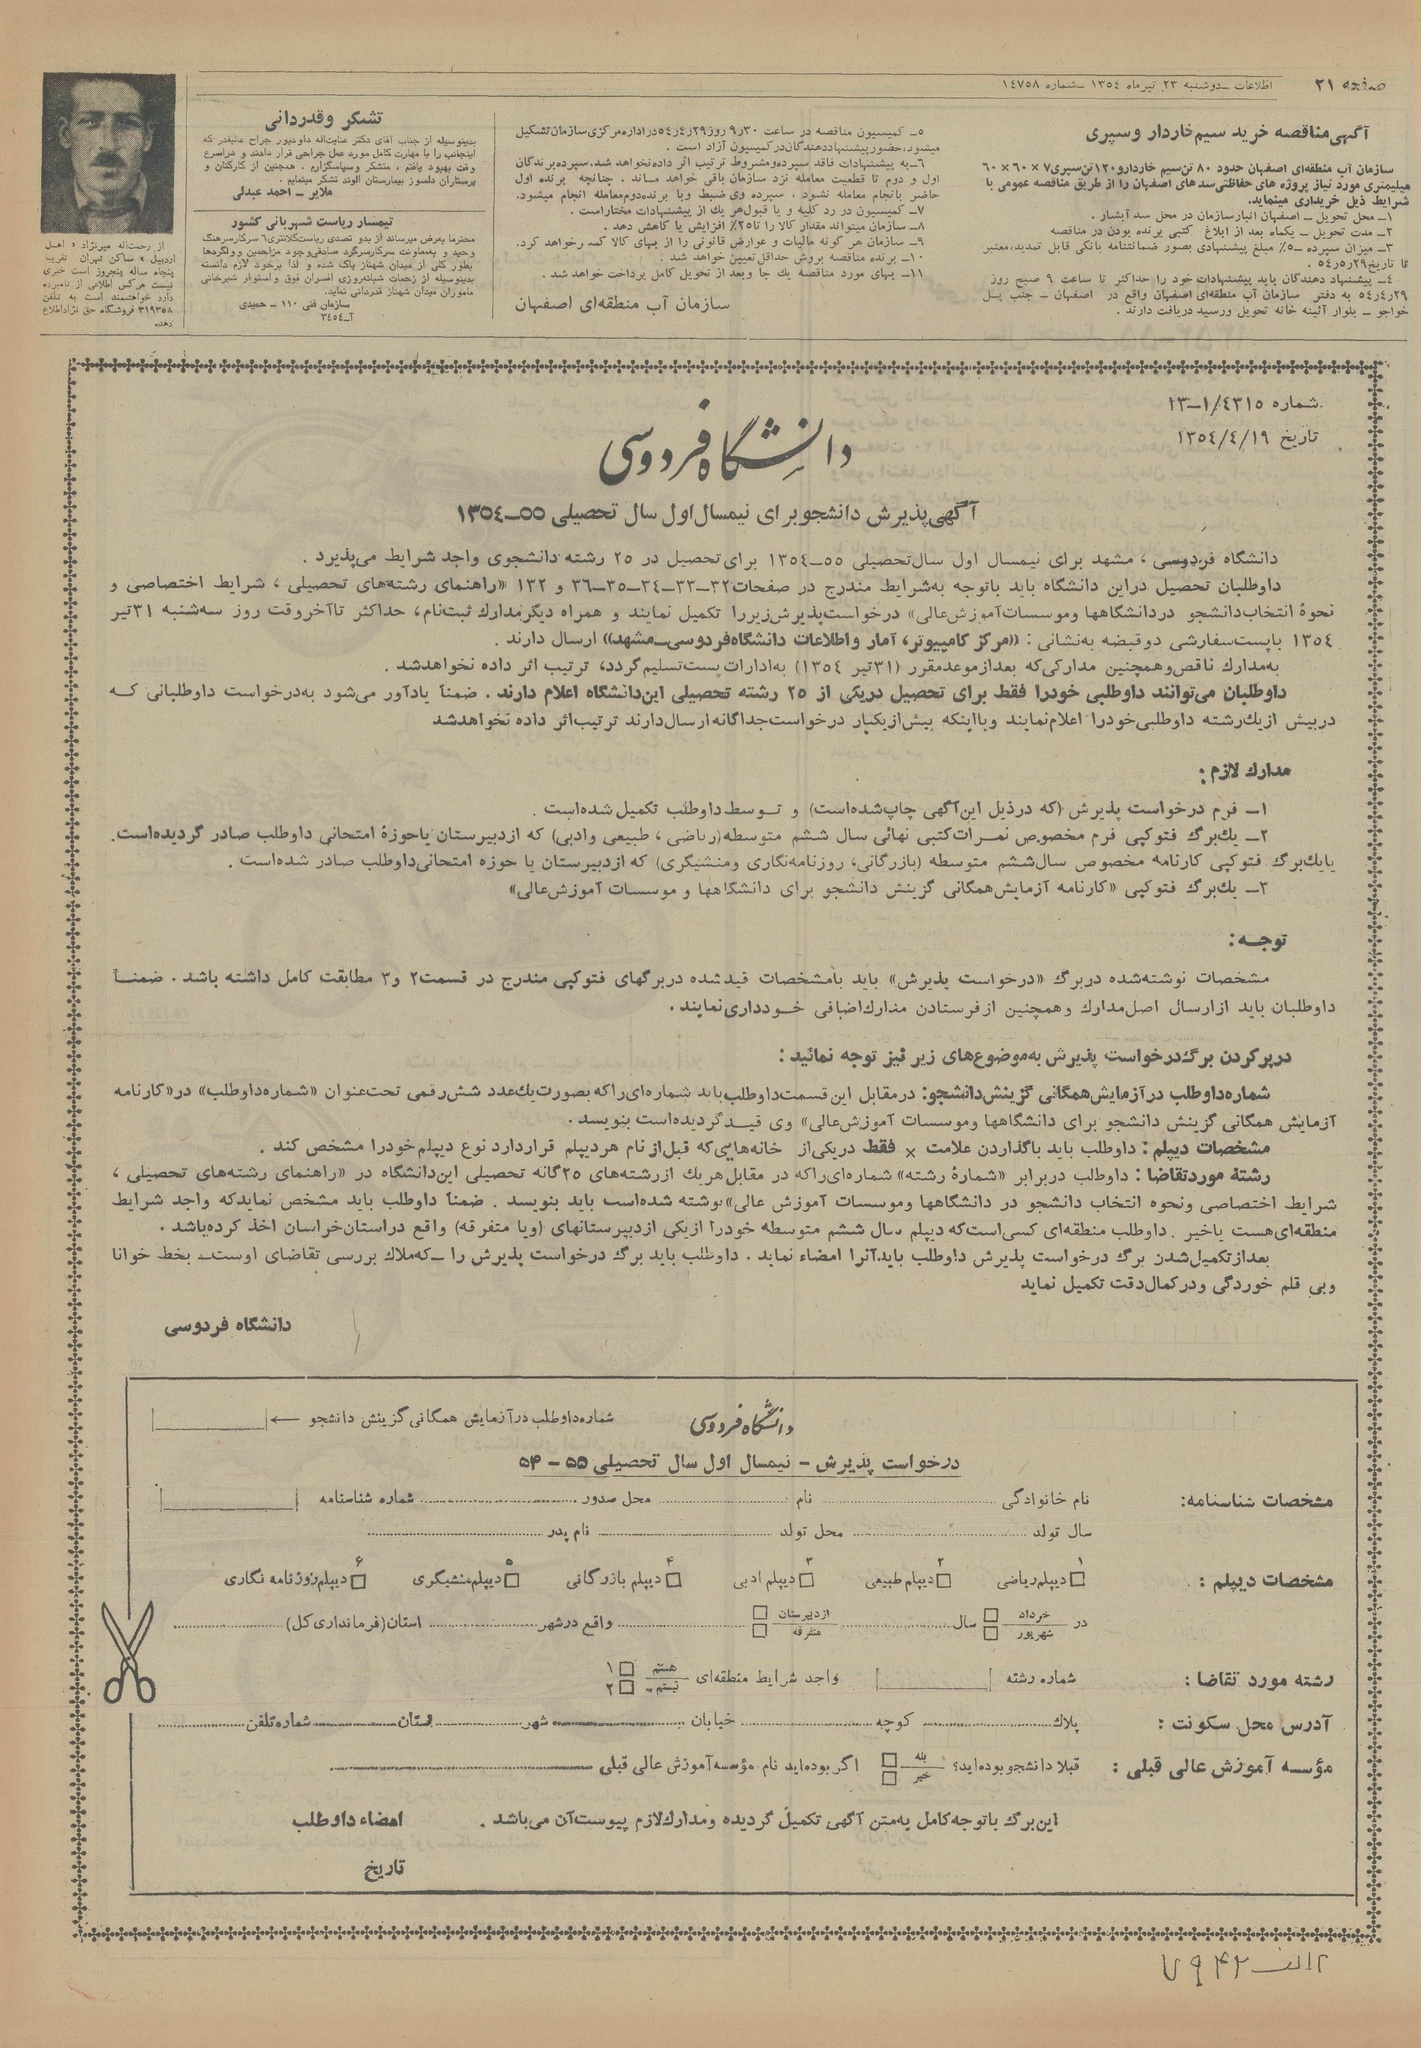 صفحه ۲۱
اطلاعات ـ دوشنبه ۲۳ تیرماه ۱۳۵۴ ـ شماره ۱۴۷۵۸
آگهی مناقصه خرید سیم خاردار و سپری
سازمان آب منطقه‌ای اصفهان حدود ۸۰ تن سیم خاردار و ۱۲۰ تن سپری ۷ × ۶۰ × ۶۰
میلیمتری مورد نیاز پروژه های حفاظتی سدهای اصفهان را از طریق مناقصه عمومی با
شرایط ذیل خریداری مینماید.
۱ـ محل تحویل ـ اصفهان انبار سازمان در محل سد آبشار .
۲ـ مدت تحویل ـ یکماه بعد از ابلاغ کتبی برنده بودن در مناقصه
۳ـ میزان سپرده ـ ۵٪ مبلغ پیشنهادی بصور ضمانتنامه بانکی قابل تمدید، معتبر
تا تاریخ ۵۴ر۵ر۲۹
۴ـ پیشنهاد دهندگان باید پیشنهادات خود را حداکثر تا ساعت ۹ صبح روز
۵۴ر۴ر۲۹ به دفتر سازمان آب منطقه‌ای اصفهان واقع در اصفهان ـ جنب پل
خواجو ـ بلوار آئینه خانه تحویل و رسید دریافت دارند .
۵ـ کمیسیون مناقصه در ساعت ۳۰ر۹ روز ۵۴ر۴ر۲۹ در اداره مرکزی سازمان تشکیل
میشود، حضور پیشنهاد دهندگان در کمیسیون آزاد است .
۶ـ به پیشنهادات فاقد سپرده و مشروط ترتیب اثر داده نخواهد شد، سپرده برندگان
اول و دوم تا قطعیت معامله نزد سازمان باقی خواهد ماند . چنانچه برنده اول
حاضر بانجام معامله نشود ، سپرده وی ضبط و با برنده دوم معامله انجام میشود.
۷ـ کمیسیون در رد کلیه و یا قبول هر یک از پیشنهادات مختار است .
۸ـ سازمان میتواند مقدار کالا را تا ۲۵٪ افزایش یا کاهش دهد .
۹ـ سازمان هر گونه مالیات و عوارض قانونی را از بهای کالا کسر خواهد کرد.
۱۰ـ برنده مناقصه بروش حداقل تعیین خواهد شد .
۱۱ـ بهای مورد مناقصه یک جا و بعد از تحویل کامل پرداخت خواهد شد .
سازمان آب منطقه‌ای اصفهان
تشکر و قدردانی
بدینوسیله از جناب آقای دکتر عنایت‌اله داودپور جراح عالیقدر که
اینجانب را با مهارت کامل مورد عمل جراحی قرار دادند و در اسرع
وقت بهبود یافتم ، متشکر و سپاسگزارم . همچنین از کارکنان و
پرستاران دلسوز بیمارستان الوند تشکر مینمایم .
ملایر ـ احمد عبدلی
تیمسار ریاست شهربانی کشور
محترما بعرض میرساند از بدو تصدی ریاست کلانتری ۶ سرکار سرهنگ
وحید و بمعاونت سرکار سرگرد صادقی وجود مزاحمین و ولگردها
بطور کلی از میدان شهناز پاک شده و لذا برخود لازم دانسته
بدینوسیله از زحمات شبانه‌روزی افسران فوق و استوار شیرخانی
ماموران میدان شهناز قدردانی نماید.
سازمان فنی ۱۱۰ ـ حمیدی
آ ـ ۳۴۵۴
از رحمت‌اله میرنژاد « اهل
اردبیل » ساکن تهران تقریبا
پنجاه ساله پنجروز است خبری
نیست هرکس اطلاعی از نامبرده
دارد خواهشمند است به تلفن
۳۱۹۳۵۸ فروشگاه حق نژاد اطلاع
دهد.
شماره ۱۳ـ۱/۴۳۱۵
تاریخ ۱۳۵۴/۴/۱۹
دانشگاه فردوسی
آگهی پذیرش دانشجو برای نیمسال اول سال تحصیلی ۵۵ـ۱۳۵۴
دانشگاه فردوسی ، مشهد برای نیمسال اول سال تحصیلی ۵۵ـ۱۳۵۴ برای تحصیل در ۲۵ رشته دانشجوی واجد شرایط می‌پذیرد .
داوطلبان تحصیل در این دانشگاه باید باتوجه به شرایط مندرج در صفحات ۳۲ـ۳۳ـ۳۴ـ۳۵ـ۳۶ و ۱۳۲ «راهنمای رشته‌های تحصیلی ، شرایط اختصاصی و
نحوهٔ انتخاب دانشجو در دانشگاهها و موسسات آموزش عالی» درخواست پذیرش زیر را تکمیل نمایند و همراه دیگر مدارک ثبت‌نام، حداکثر تا آخر وقت روز سه‌شنبه ۳۱ تیر
۱۳۵۴ با پست سفارشی دو قبضه به نشانی : «مرکز کامپیوتر، آمار و اطلاعات دانشگاه فردوسی ـ مشهد» ارسال دارند .
به مدارک ناقص و همچنین مدارکی که بعد از موعد مقرر (۳۱ تیر ۱۳۵۴) به ادارات پست تسلیم گردد، ترتیب اثر داده نخواهد شد .
داوطلبان می‌توانند داوطلبی خود را فقط برای تحصیل در یکی از ۲۵ رشته تحصیلی این دانشگاه اعلام دارند . ضمناً یادآور می‌شود به درخواست داوطلبانی که
در بیش از یک رشته داوطلبی خود را اعلام نمایند و یا اینکه بیش از یکبار درخواست جداگانه ارسال دارند ترتیب اثر داده نخواهد شد
مدارک لازم :
۱ـ فرم درخواست پذیرش (که در ذیل این آگهی چاپ شده است) و توسط داوطلب تکمیل شده است .
۲ـ یک برگ فتوکپی فرم مخصوص نمرات کتبی نهائی سال ششم متوسطه (ریاضی ، طبیعی و ادبی) که از دبیرستان یا حوزهٔ امتحانی داوطلب صادر گردیده است.
یا یک برگ فتوکپی کارنامه مخصوص سال ششم متوسطه (بازرگانی، روزنامه‌نگاری و منشیگری) که از دبیرستان یا حوزه امتحانی داوطلب صادر شده است .
۳ـ یک برگ فتوکپی «کارنامه آزمایش همگانی گزینش دانشجو برای دانشگاهها و موسسات آموزش عالی»
توجه :
مشخصات نوشته شده در برگ «درخواست پذیرش» باید با مشخصات قید شده در برگهای فتوکپی مندرج در قسمت ۲ و ۳ مطابقت کامل داشته باشد . ضمناً
داوطلبان باید از ارسال اصل مدارک و همچنین از فرستادن مدارک اضافی خودداری نمایند .
در پر کردن برگ درخواست پذیرش به موضوع‌های زیر نیز توجه نمائید :
شماره داوطلب در آزمایش همگانی گزینش دانشجو: در مقابل این قسمت داوطلب باید شماره‌ای را که بصورت یک عدد شش رقمی تحت عنوان «شماره داوطلب» در «کارنامه
آزمایش همگانی گزینش دانشجو برای دانشگاهها و موسسات آموزش عالی» وی قید گردیده است بنویسد .
مشخصات دیپلم : داوطلب باید با گذاردن علامت × فقط در یکی از خانه‌هایی که قبل از نام هر دیپلم قرار دارد نوع دیپلم خود را مشخص کند .
رشتهٔ مورد تقاضا : داوطلب در برابر «شمارهٔ رشته» شماره‌ای را که در مقابل هر یک از رشته‌های ۲۵ گانه تحصیلی این دانشگاه در «راهنمای رشته‌های تحصیلی ،
شرایط اختصاصی و نحوه انتخاب دانشجو در دانشگاهها و موسسات آموزش عالی» نوشته شده است باید بنویسد . ضمناً داوطلب باید مشخص نماید که واجد شرایط
منطقه‌ای هست یا خیر . داوطلب منطقه‌ای کسی است که دیپلم سال ششم متوسطه خود را از یکی از دبیرستانهای (و یا متفرقه) واقع در استان خراسان اخذ کرده باشد .
بعد از تکمیل شدن برگ درخواست پذیرش داوطلب باید آنرا امضاء نماید . داوطلب باید برگ درخواست پذیرش را ـ که ملاک بررسی تقاضای اوست ـ بخط خوانا
و بی قلم خوردگی و در کمال دقت تکمیل نماید
دانشگاه فردوسی
دانشگاه فردوسی
شماره داوطلب در آزمایش همگانی گزینش دانشجو ←
درخواست پذیرش - نیمسال اول سال تحصیلی ۵۵ - ۵۴
مشخصات شناسنامه: نام خانوادگی نام محل صدور شماره شناسنامه
سال تولد محل تولد نام پدر
مشخصات دیپلم : ۱ دیپلم ریاضی ۲ دیپلم طبیعی ۳ دیپلم ادبی ۴ دیپلم بازرگانی ۵ دیپلم منشیگری ۶ دیپلم روزنامه نگاری
در خرداد شهریور سال از دبیرستان متفرقه واقع در شهر استان (فرمانداری کل)
رشته مورد تقاضا : شماره رشته واجد شرایط منطقه‌ای هستم ۱ نیستم ۲
آدرس محل سکونت : پلاک کوچه خیابان شهر استان شماره تلفن
مؤسسه آموزش عالی قبلی : قبلا دانشجو بوده‌اید؟ بله خیر اگر بوده‌اید نام مؤسسه آموزش عالی قبلی
این برگ با توجه کامل به متن آگهی تکمیل گردیده و مدارک لازم پیوست آن می‌باشد .
امضاء داوطلب
تاریخ